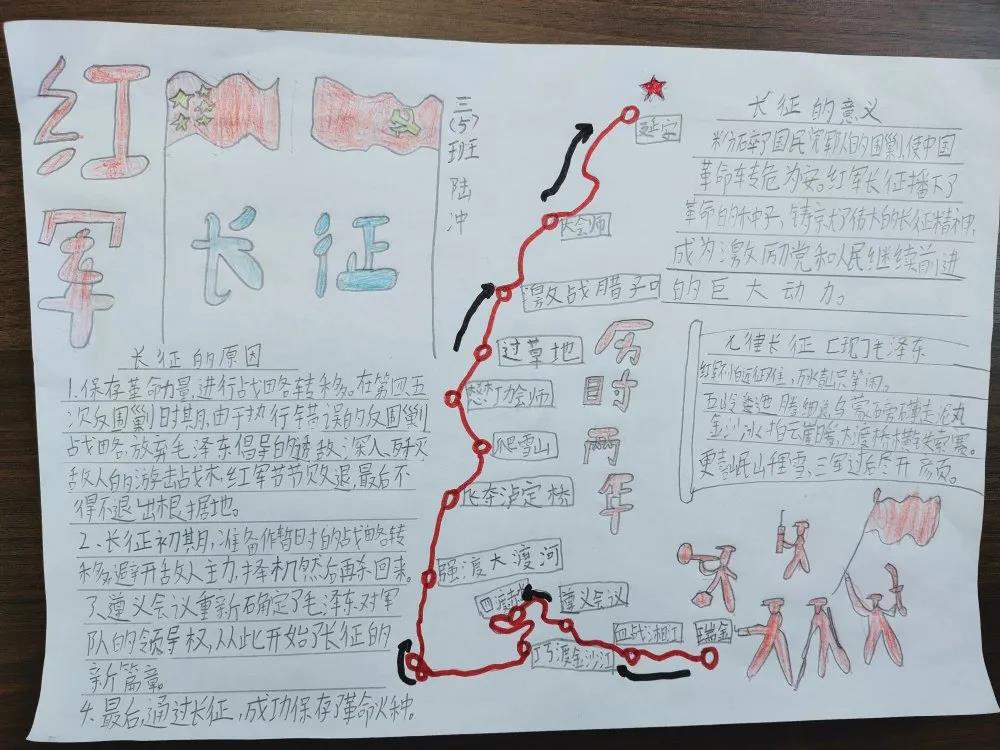 红军
长征
三(5)班 陆冲
长征的原因
1.保存革命力量,进行战略转移。在第四五
次反围剿时期,由于执行错误的反围剿
战略,放弃毛泽东倡导的诱敌深入、歼灭
敌人的游击战术,红军节节败退,最后不
得不退出根据地。
2、长征初期,准备作暂时的战略转
移,避开敌人主力,择机然后再杀回来。
3、遵义会议重新确定了毛泽东对军
队的领导权,从此开始了长征的
新篇章。
4.最后,通过长征,成功保存了革命火种。
延安
大会师
激战腊子口
过草地
懋功会师
爬雪山
飞夺泸定桥
强渡大渡河
四渡赤
遵义会议
血战湘江
瑞金
巧渡金沙江
历时两年
长征的意义
粉碎了国民党军队的围剿,使中国
革命转危为安。红军长征播下了
革命的种子,铸就了伟大的长征精神,
成为激励党和人民继续前进
的巨大动力。
七律长征 [现]毛泽东
红军不怕远征难,只等闲。
五岭逶迤腾细浪,乌蒙磅礴走泥丸
金沙水拍云崖暖,大渡桥横铁索寒。
更喜岷山千里雪,三军过后尽开颜。